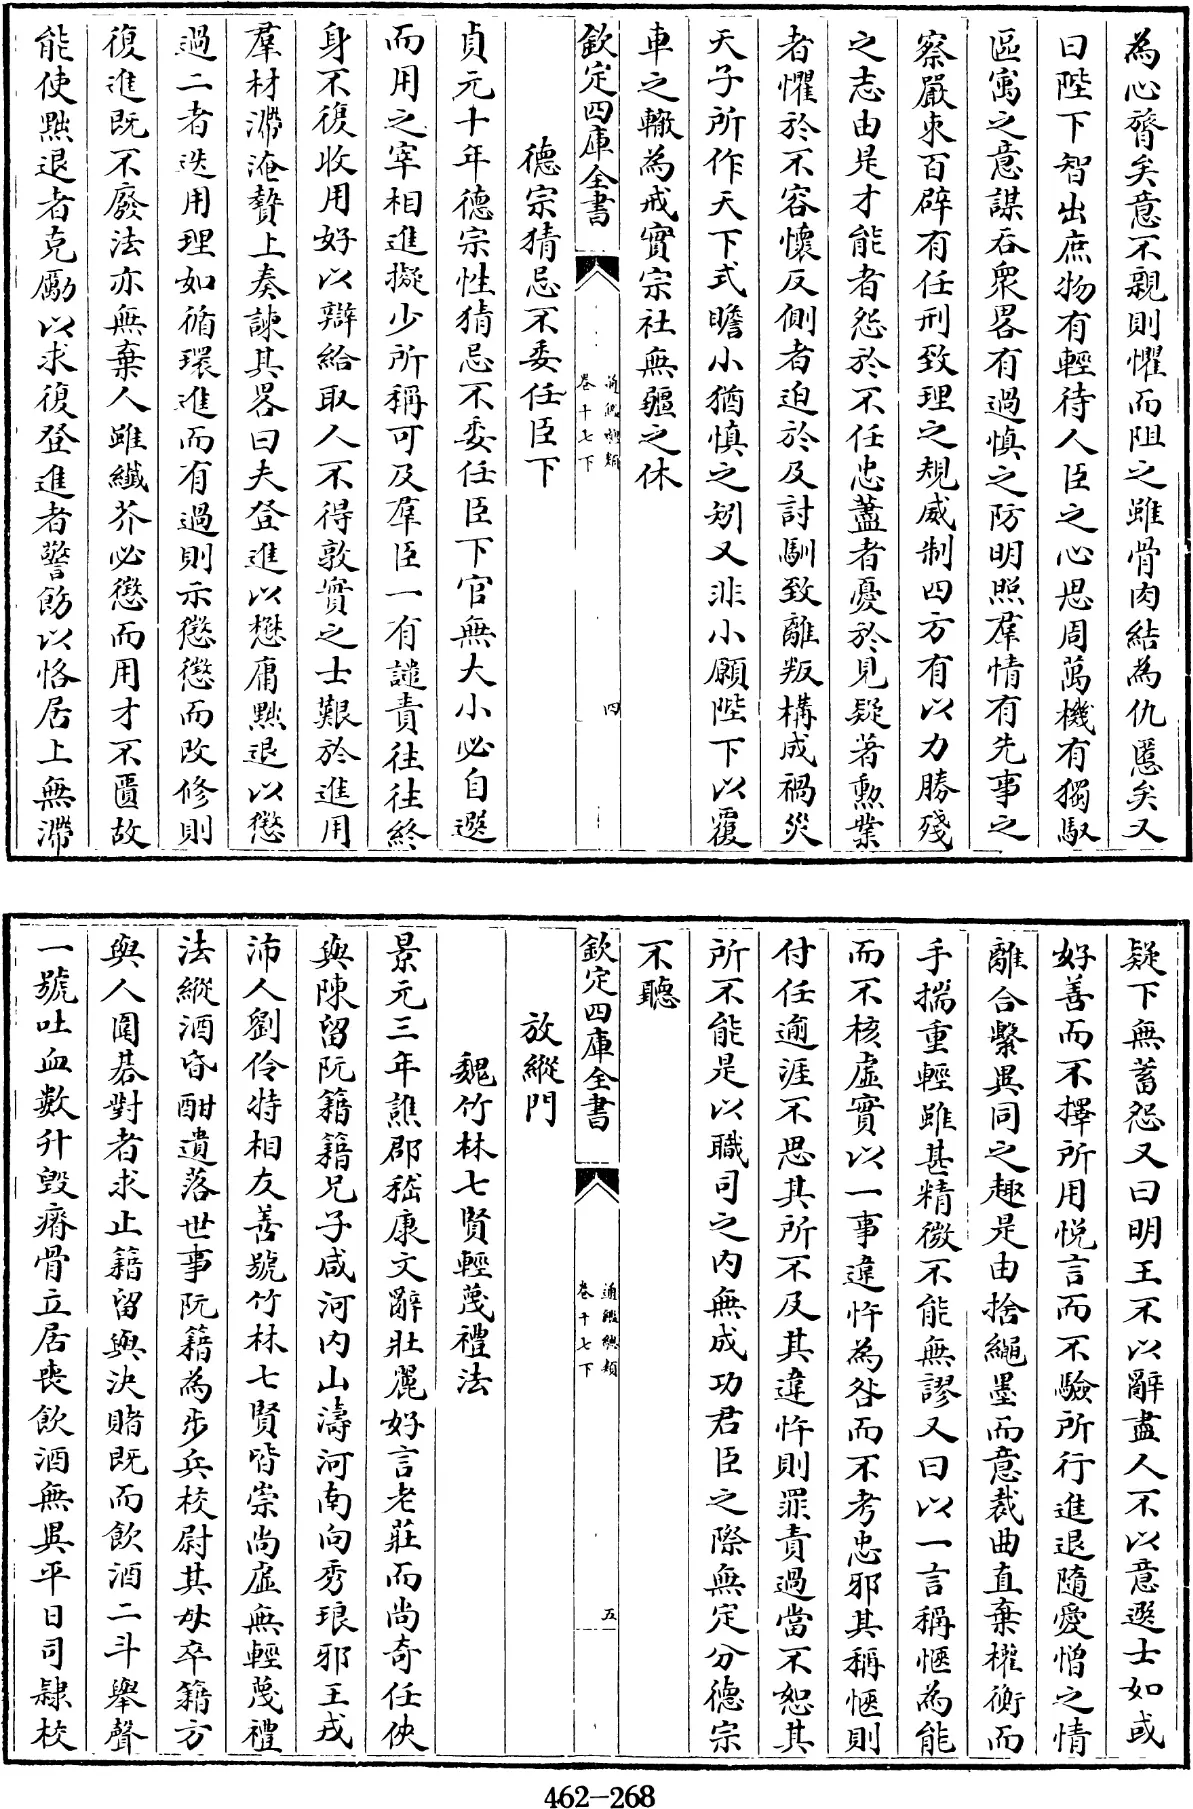 為心膂矣意不親則懼而阻之雖骨肉結為仇慝矣又
曰陛下智出庶物有輕待人臣之心思周萬機有獨馭
區寓之意謀吞衆畧有過慎之防明照羣情有先事之
察嚴束百辟有任刑致理之規威制四方有以力勝殘
之志由是才能者怨於不任忠藎者憂於見疑著勲業
者懼於不容懷反側者迫於及討馴致離叛構成禍災
天子所作天下式瞻小猶慎之矧又非小願陛下以覆
車之轍為戒實宗社無疆之休
欽定四庫全書
通鑑總類
卷十七下
四
德宗猜忌不委任臣下
貞元十年德宗性猜忌不委任臣下官無大小必自選
而用之宰相進擬少所稱可及羣臣一有譴責往往終
身不復收用好以辯給取人不得敦實之士艱於進用
羣材滯淹贄上奏諫其畧曰夫登進以懋庸黜退以懲
過二者迭用理如循環進而有過則示懲懲而改修則
復進既不廢法亦無棄人雖纖芥必懲而用才不匱故
能使黜退者克勵以求復登進者警飭以恪居上無滯
疑下無蓄怨又曰明王不以辭盡人不以意選士如或
好善而不擇所用悅言而不驗所行進退隨愛憎之情
離合繫異同之趣是由捨繩墨而意裁曲直棄權衡而
手揣重輕雖甚精微不能無謬又曰以一言稱愜為能
而不核虛實以一事違忤為咎而不考忠邪其稱愜則
付任逾涯不思其所不及其違忤則罪責過當不恕其
所不能是以職司之內無成功君臣之際無定分德宗
不聽
欽定四庫全書
通鑑總類
卷十七下
五
放縱門
魏竹林七賢輕蔑禮法
景元三年譙郡嵇康文辭壯麗好言老莊而尚奇任俠
與陳留阮籍籍兄子咸河內山濤河南向秀琅邪王戎
沛人劉伶特相友善號竹林七賢皆崇尚虛無輕蔑禮
法縱酒昏酣遺落世事阮籍為步兵校尉其母卒籍方
與人圍棊對者求止籍留與決賭既而飲酒二斗舉聲
一號吐血數升毀瘠骨立居喪飲酒無異平日司隸校
462-268